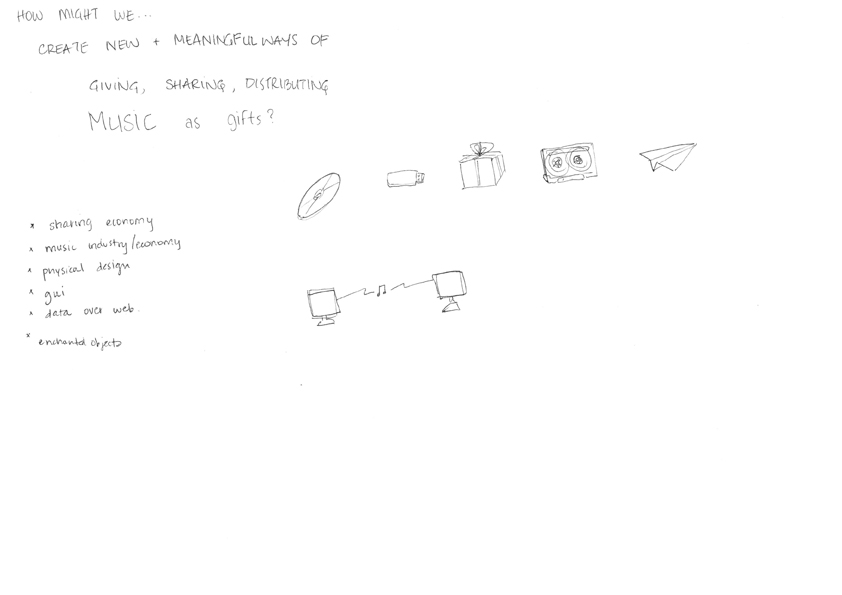 HOW MIGHT WE...
CREATE NEW + MEANINGFUL WAYS OF
GIVING, SHARING, DISTRIBUTING
MUSIC as gifts?
* sharing economy
* music industry/economy
* physical design
* gui
* data over web.
* enchanted objects